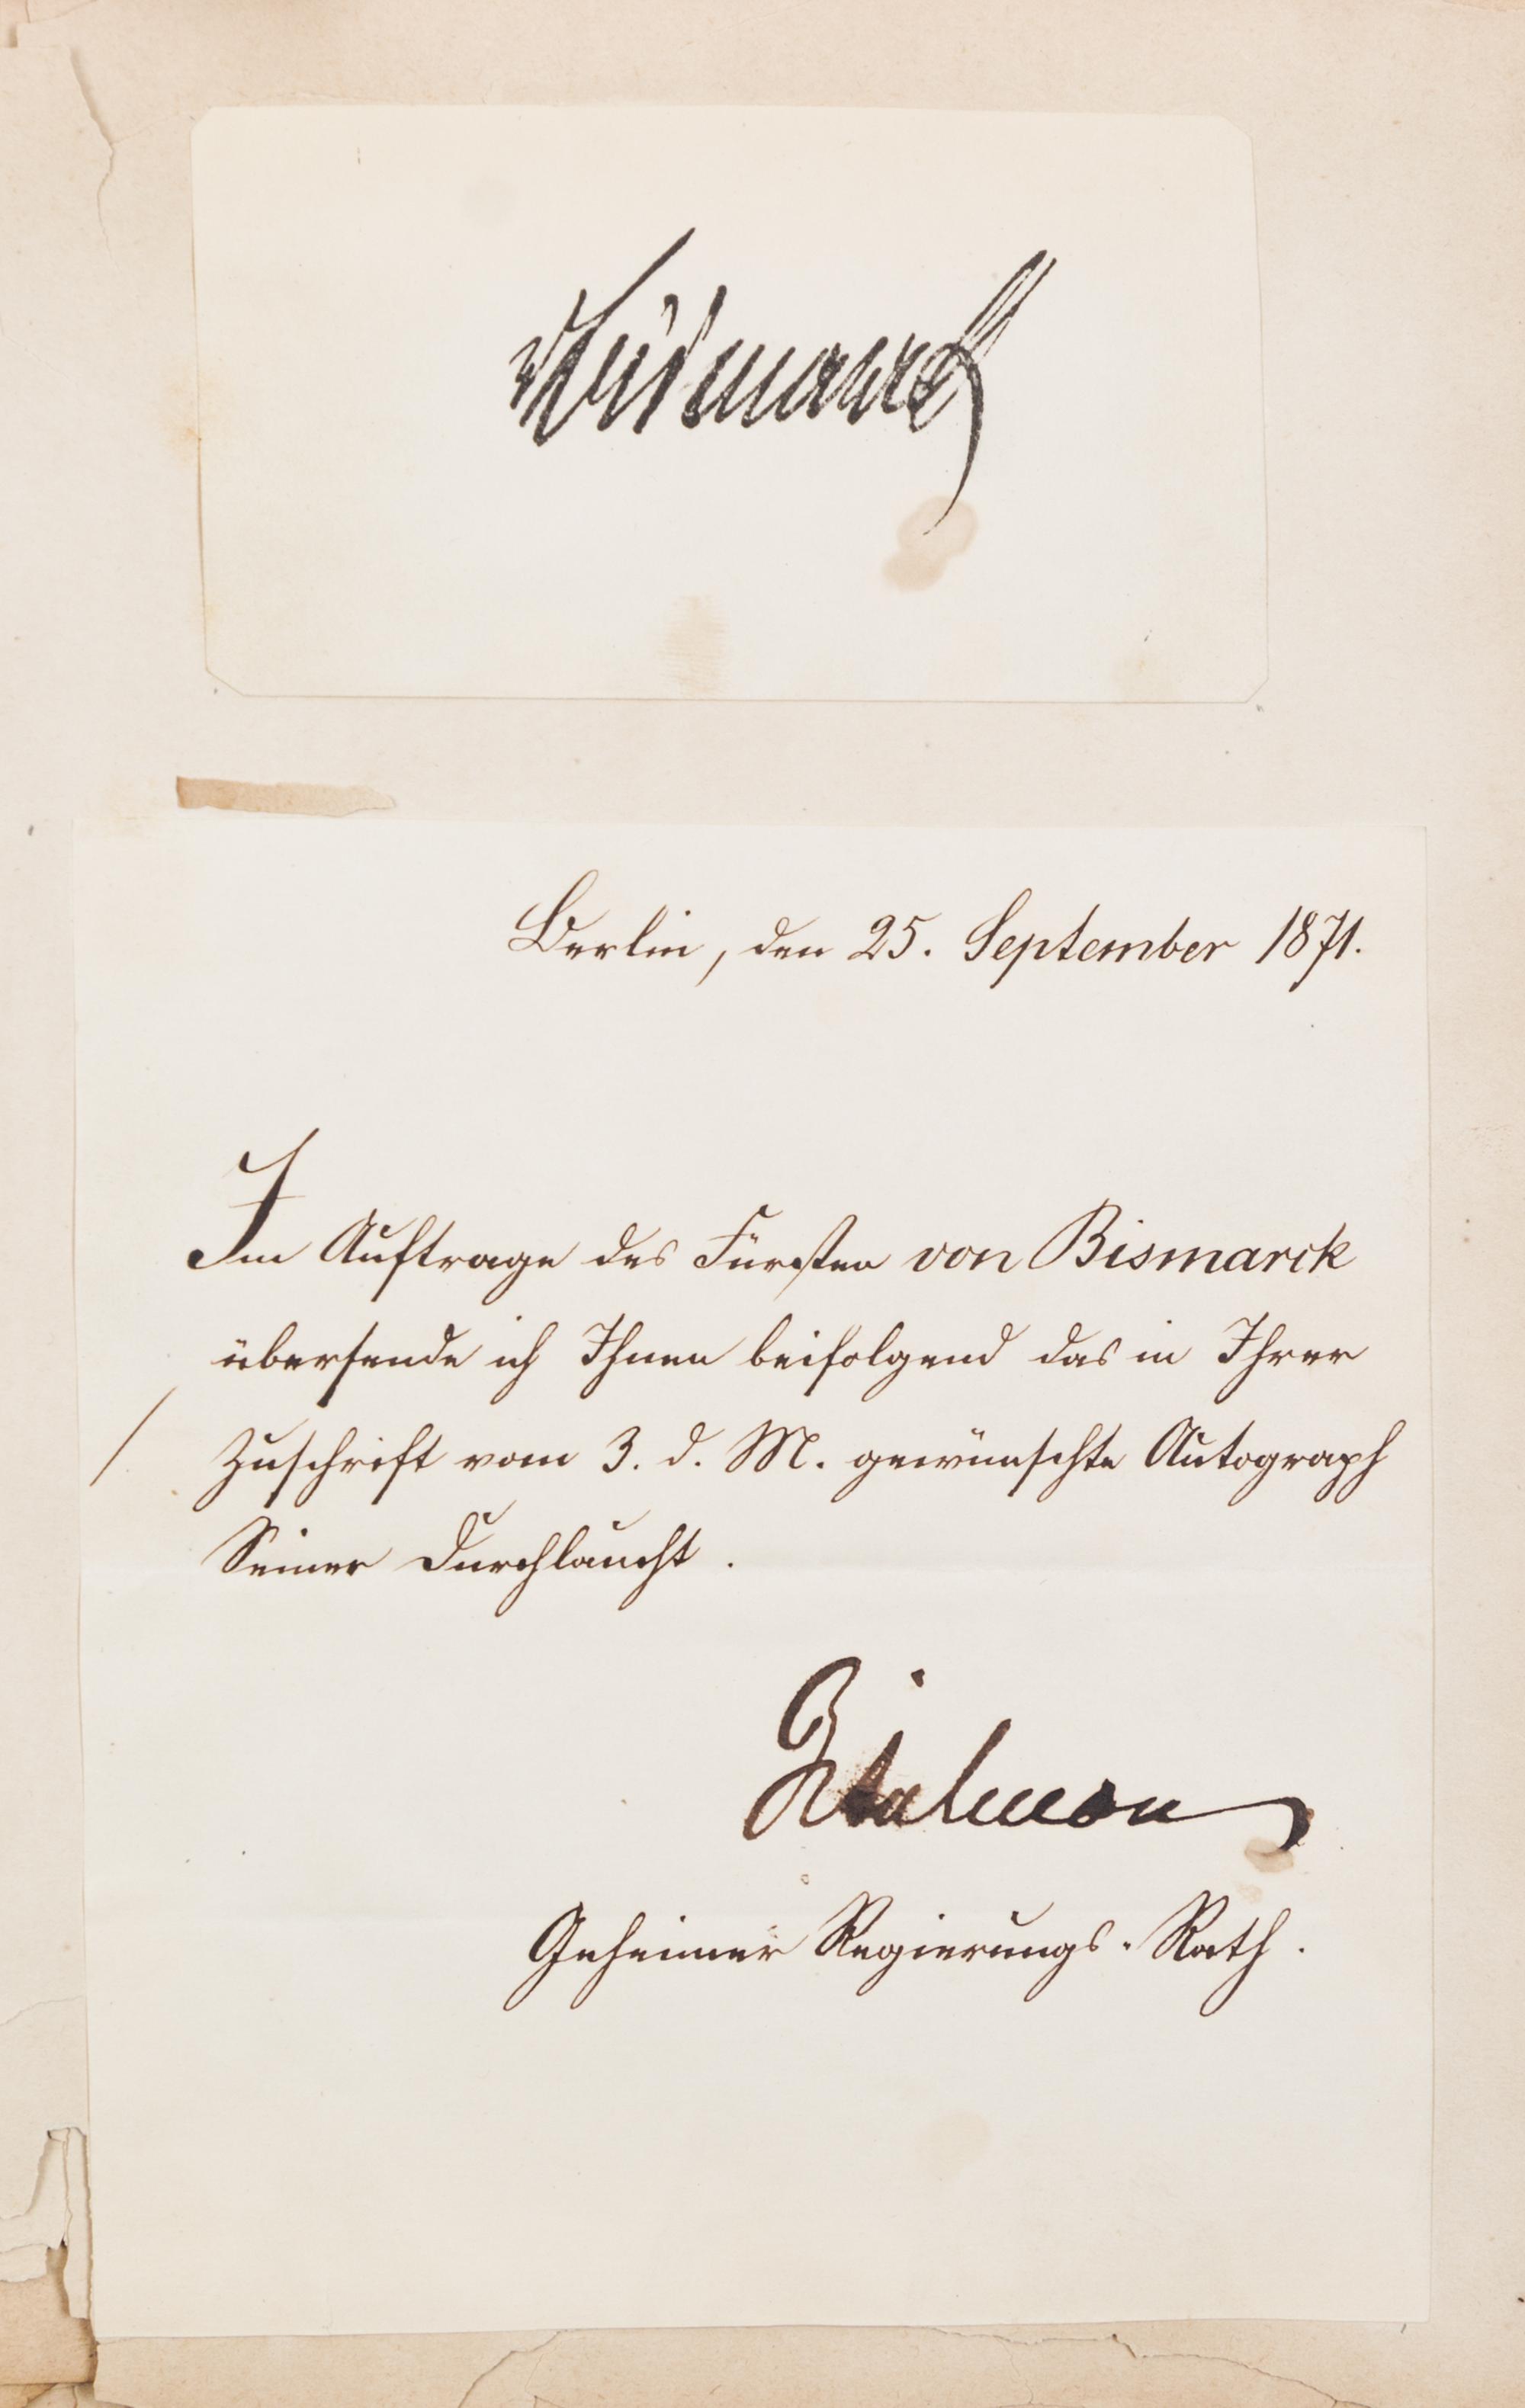 v Bismarck
Berlin, den 25. September 1871.
Im Auftrage des Fürsten von Bismarck
übersende ich Ihnen beifolgend das in Ihrer
Zuschrift vom 3. d. M. gewünschte Autograph
Seiner Durchlaucht.
Geheimer Regierungs-Rath.